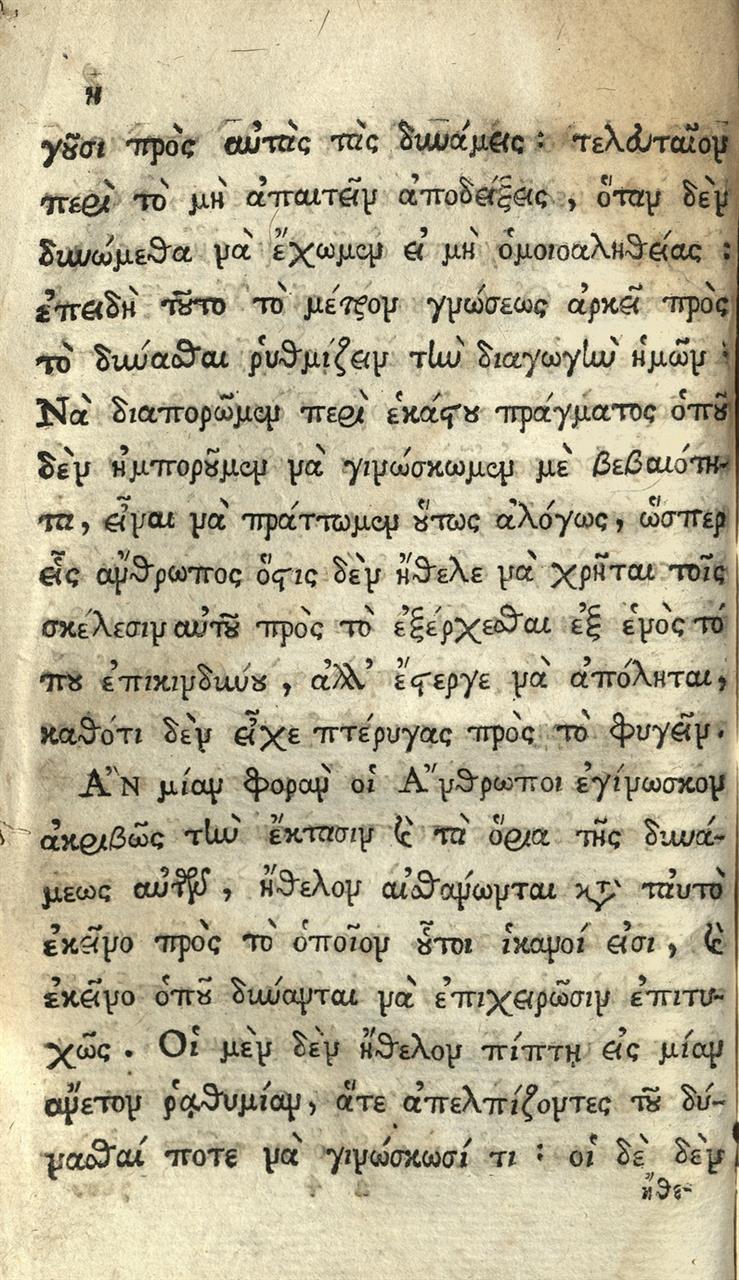 η
γοῦσι πρὸς αὐτὰς τὰς δυνάμεις : τελευταῖον
περὶ τὸ μὴ ἀπαιτεῖν ἀποδείξεις , ὅταν δὲν
δυνώμεθα νὰ ἔχωμεν εἰ μὴ ὁμοιοαληθείας :
ἐπειδὴ τοῦτο τὸ μέτρον γνώσεως ἀρκεῖ πρὸς
τὸ δύνασθαι ῥυθμίζειν τὴν διαγωγὴν ἡμῶν :
Νὰ διαπορῶμεν περὶ ἑκάστου πράγματος ὁποῦ
δὲν ἠμποροῦμεν νὰ γινώσκωμεν μὲ βεβαιότη-
τα, εἶναι νὰ πράττωμεν οὕτως ἀλόγως, ὥσπερ
εἷς ἄνθρωπος ὅστις δὲν ἤθελε νὰ χρῆται τοῖς
σκέλεσιν αὐτοῦ πρὸς τὸ ἐξέρχεσθαι ἐξ ἑνὸς τό
που ἐπικινδύνου , ἀλλ' ἔστεργε νὰ ἀπόληται,
καθότι δὲν εἶχε πτέρυγας πρὸς τὸ φυγεῖν.
ἊΝ μίαν φορὰν οἱ Ἄνθρωποι ἐγίνωσκον
ἀκριβῶς τὴν ἔκτασιν καὶ τὰ ὅρια τῆς δυνά-
μεως αὐτῶν , ἤθελον αἰσθανθῶνται κατ' ταυτὸ
ἐκεῖνο πρὸς τὸ ὁποῖον οὗτοι ἱκανοί εἰσι , καὶ
ἐκεῖνο ὁποῦ δύνανται νὰ ἐπιχειρῶσιν ἐπιτυ-
χῶς . Οἱ μὲν δὲν ἤθελον πίπτῃ εἰς μίαν
ἄνετον ῥᾳθυμίαν, ἅτε ἀπελπίζοντες τοῦ δύ-
νασθαί ποτε νὰ γινώσκωσί τι : οἱ δὲ δὲν
ἤθε-